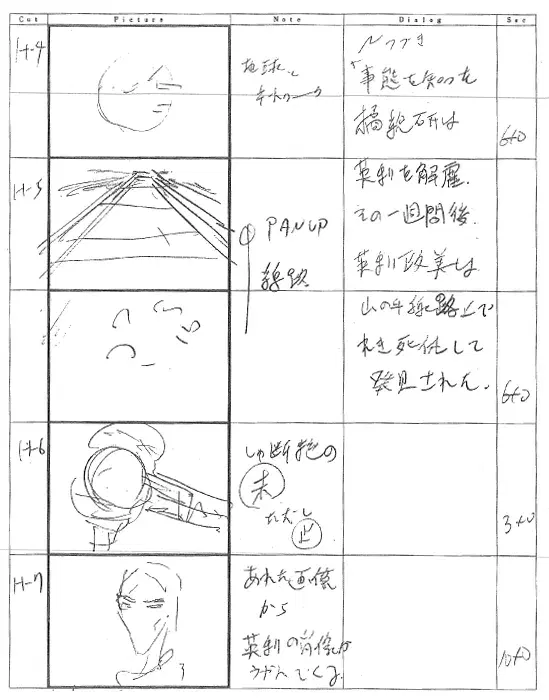 Cut Picture Note Dialog Sec
H-4
地球と
ネットワーク
Nつづき
「事態を知った
橘総研は
6+0
H-5
PAN UP
線路
英利を解雇.
その一週間後.
英利政美は
山の手線路上で
れき死体として
発見された.
6+0
H-6
しゃ断機の
赤
ただし
止
3+0
H-7
あれた画像
から
英利の肖像が
うかんでくる.
10+0